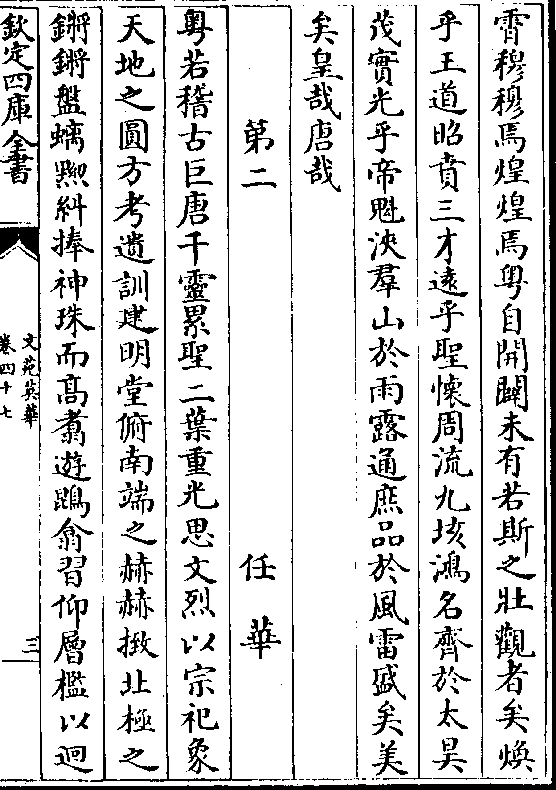 霄穆穆焉煌煌焉粤自開闢未有若斯之壯觀者矣煥
乎王道昭賁三才遠乎聖懷周流九垓鴻名齊於太昊
茂實光乎帝魁浹羣山於雨露通庶品於風雷盛矣美
矣皇哉唐哉
第二 任華
粤若稽古巨唐千靈累聖二葉重光思文烈以宗祀象
天地之圓方考遺訓建明堂俯南端之赫赫撽北極之
鏘鏘盤螭黝糾捧神珠而高翥遊鵾翕習仰層檻以迴
欽定四庫全書
文苑英華
卷四十七
三